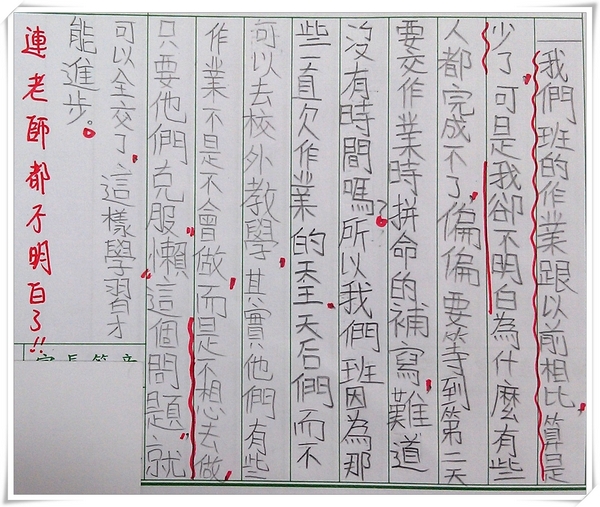 我們班的作業跟以前相比,算是
少了,可是我卻不明白為什麼有些
人都完成不了,偏偏要等到第二天
要交作業時拼命的補寫,難道
沒有時間嗎?所以我們班因為那
些一直欠作業的天王天后們而不
可以去校外教學,其實他們有些
作業不是不會做,而是不想去做,
只要他們克服"懶"這個問題,就
可以全交了,這樣學習才
能進步。
連老師都不明白了!!